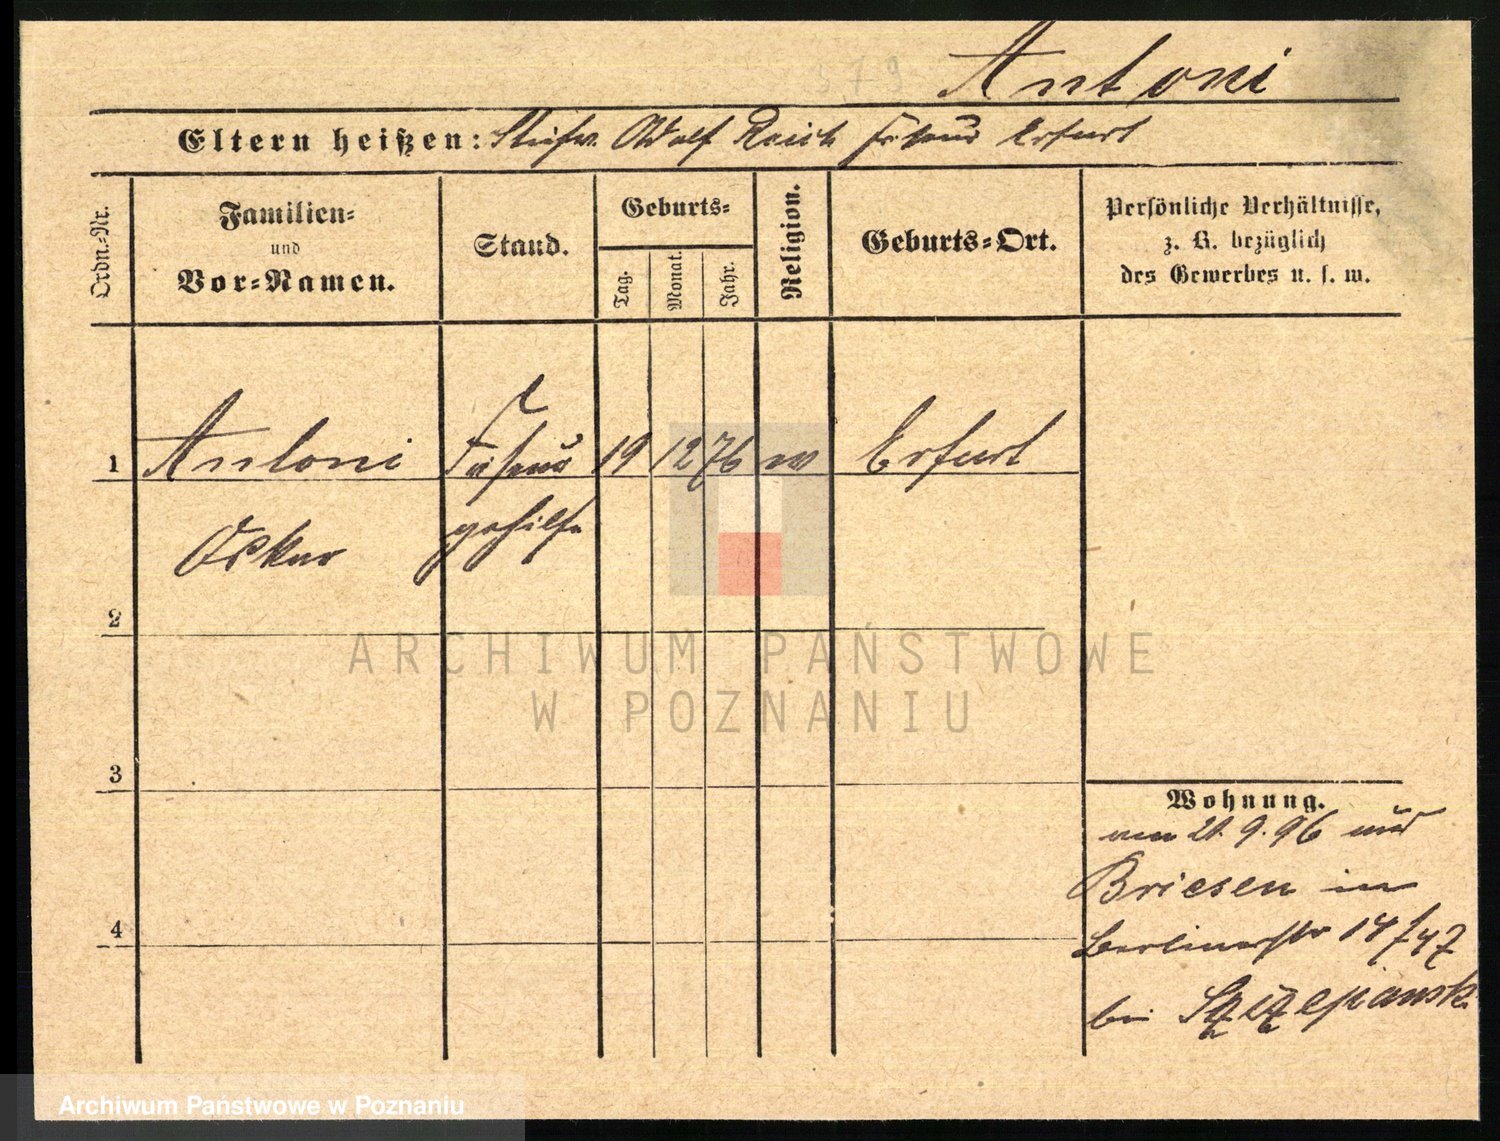 579
Antoni
Eltern heißen: Stiefv. Adolf Reich Friseur Erfurt
Ordn.-Nr.
Familien-
und
Vor-Namen.
Stand.
Geburts-
Tag.
Monat.
Jahr.
Religion.
Geburts-Ort.
Persönliche Verhältnisse,
z. B. bezüglich
des Gewerbes u. s. w.
1 Antoni Friseur 19 12 76 Erfurt
Oskar gehilfe
2
3
4
Wohnung.
21. 9. 96 aus
Briesen in
Berlinerstr 14/47
bei Szczepański
ARCHIWUM PAŃSTWOWE
W POZNANIU
Archiwum Państwowe w Poznaniu